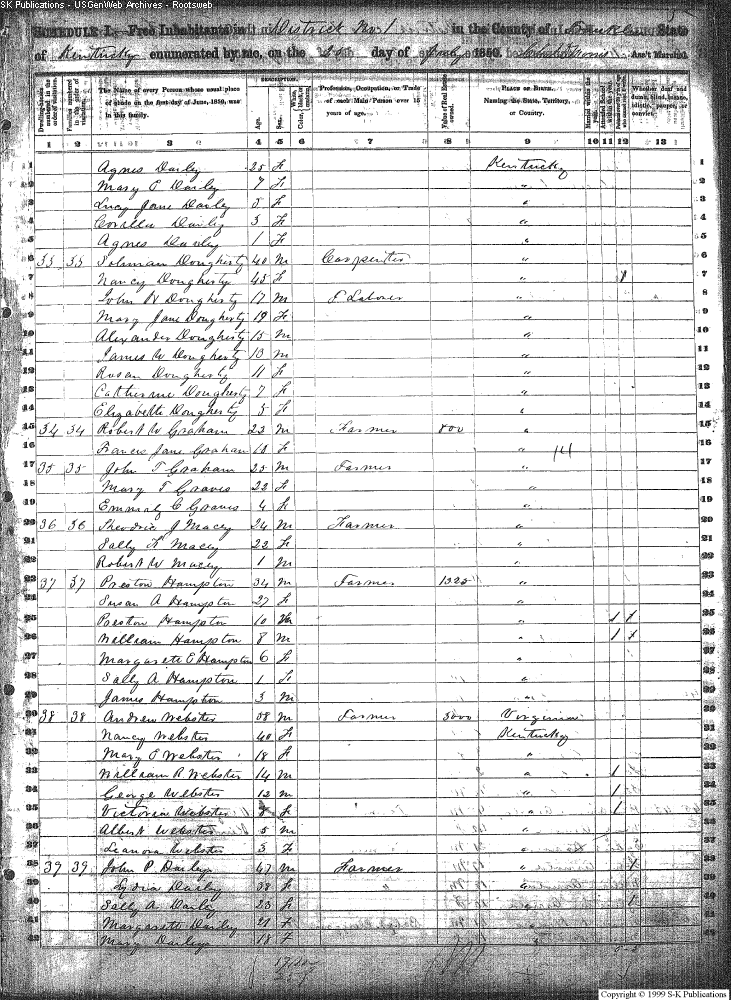 SK Publications - USGenWeb Archives - Rootsweb
SCHEDULE I. Free Inhabitants in District No 1 in the County of State
of Kentucky enumerated by me, on the day of July 1850. Ass't Marshal.
DESCRIPTION.
Dwelling-houses numbered in the order of visitation.
Families numbered in the order of visitation.
The Name of every Person whose usual place of abode on the first day of June, 1850, was in this family.
Age.
Sex.
Color, White, black, or mulatto.
Profession, Occupation, or Trade of each Male Person over 15 years of age.
Value of Real Estate owned.
PLACE OF BIRTH. Naming the State, Territory, or Country.
Married within the year.
Whether deaf and dumb, blind, insane, idiotic, pauper, or convict.
1 2 3 4 5 6 7 8 9 10 11 12 13
1 Agnes Dailey 25 F Kentucky 1
2 Mary E Dailey 7 F " 2
3 Lucy Jane Dailey 5 F " 3
4 Corilla Dailey 3 F " 4
5 Agnes Dailey 1 F " 5
6 33 33 Dougherty 40 M Carpenter " 6
7 Nancy Dougherty 45 F " 1 7
8 John W Dougherty 17 M F Laborer " 8
9 Mary Jane Dougherty 19 F " 9
10 Alexander Dougherty 15 M " 10
11 James W Dougherty 13 M " 11
12 Rosan Dougherty 11 F " 12
13 Catherine Dougherty 7 F " 13
14 Elizabeth Dougherty 5 F " 14
15 34 34 Robert W Graham 23 M Farmer 800 " 15
16 Frances Jane Graham 18 F " 16
17 35 35 John T Graham 25 M Farmer " 17
18 Mary T Graves 22 F " 18
19 Emma C Graves 4 F " 19
20 36 36 Theodric J Macey 24 M Farmer " 20
21 Sally F Macey 22 F " 21
22 Robert W Macey 1 M " 22
23 37 37 Preston Hampton 34 M Farmer 1325 " 23
24 Susan A Hampton 27 F " 24
25 Preston Hampton 10 M " 1 1 25
26 William Hampton 8 M " 1 1 26
27 Margarett E Hampton 6 F " 27
28 Sally A Hampton 1 F " 28
29 James Hampton 3 M " 29
30 38 38 Andrew Webster 58 M Farmer 5000 Virginia 30
31 Nancy Webster 40 F Kentucky 31
32 Mary E Webster 18 F " 32
33 William R Webster 14 M " 1 33
34 George Webster 12 M " 1 34
35 Victoria Webster 8 F " 1 35
36 Albert Webster 5 M " 36
37 Leanora Webster 3 F " 37
38 39 39 John P Dailey 47 M Farmer " 1 38
39 Lydia Dailey 38 F " " 39
40 Sally A Dailey 23 F " 1 40
41 Margarett Dailey 21 F " 41
42 Mary Dailey 18 F " 42
Copyright © 1999 S-K Publications